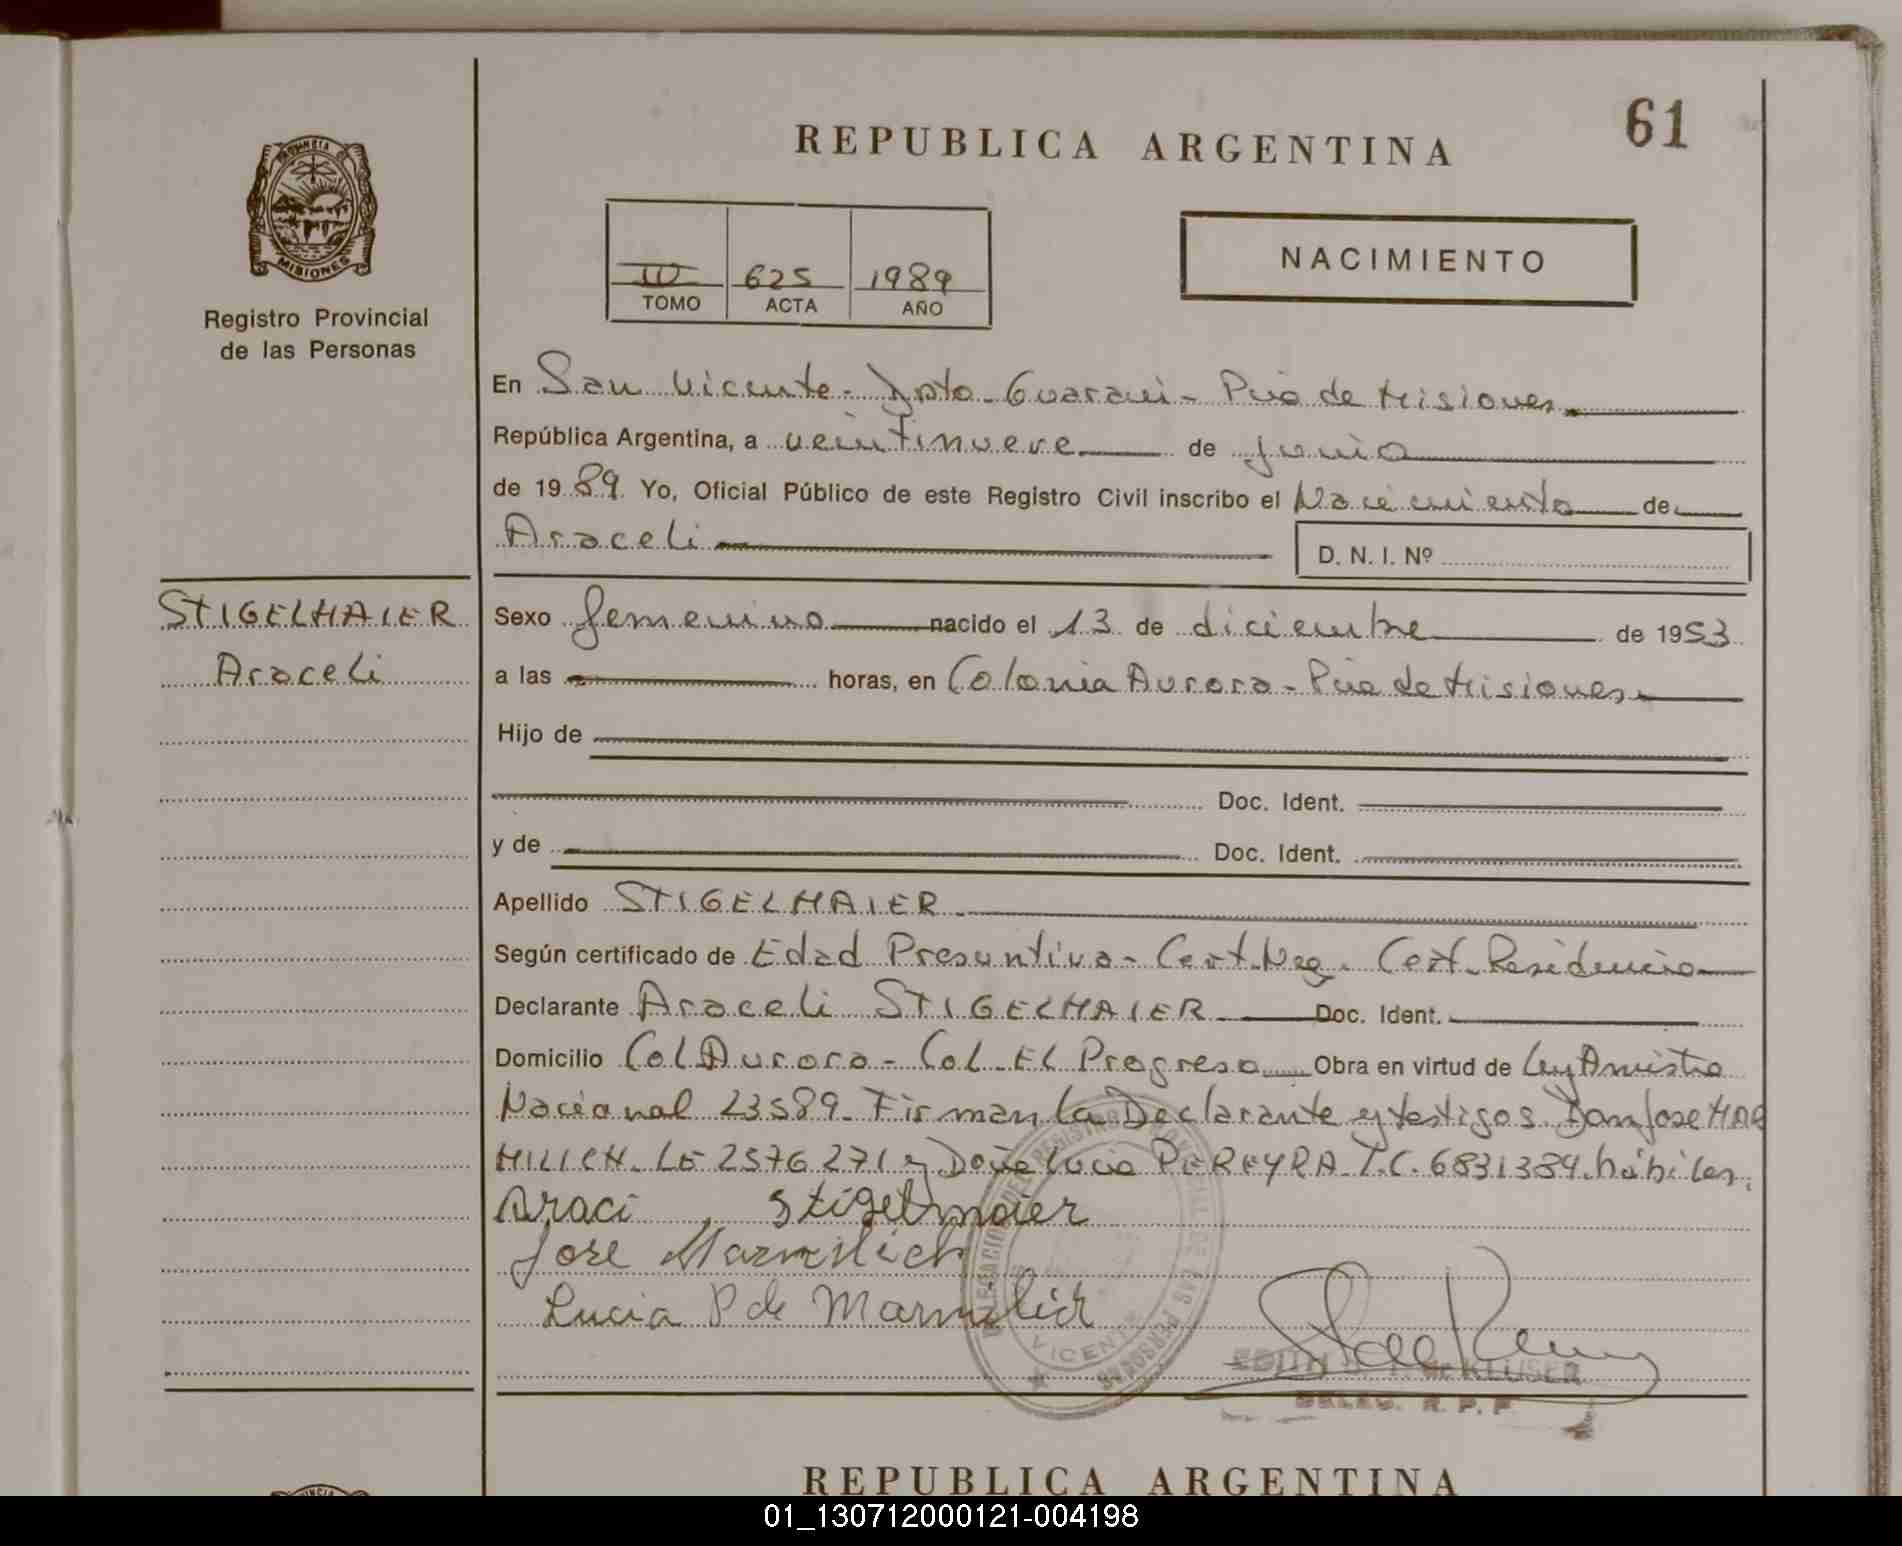 61
REPUBLICA ARGENTINA
PROVINCIA DE
MISIONES
Registro Provincial
de las Personas
625 1989
TOMO ACTA AÑO
NACIMIENTO
En San Vicente - Dpto. Guarani - Pcia de Misiones
República Argentina, a veintinueve de junio
de 1989 Yo, Oficial Público de este Registro Civil inscribo el Nacimiento de
Araceli D. N. I. Nº
STIGELHAIER
Araceli
Sexo femenino nacido el 13 de diciembre de 1953
a las horas, en Colonia Aurora - Pcia de Misiones
Hijo de
Doc. Ident.
y de Doc. Ident.
Apellido STIGELHAIER
Según certificado de Edad Presuntiva - Cert. Neg. Cert. Residencia
Declarante Araceli STIGELHAIER Doc. Ident.
Domicilio Col Aurora - Col. El Progreso Obra en virtud de Ley Amistia
Nacional 23589. Firman la Declarante y testigos Don Jose MAR
MILICH. LE 2576271 y Doña Lucia PEREYRA T.C. 6831384. hábiles.
Araci Stigelmaier
Jose Marmilich
Lucia P de Marmilich
VICENTE
EDITH de KLUSER
DELEG. R. P. P.
REPUBLICA ARGENTINA
01_130712000121-004198